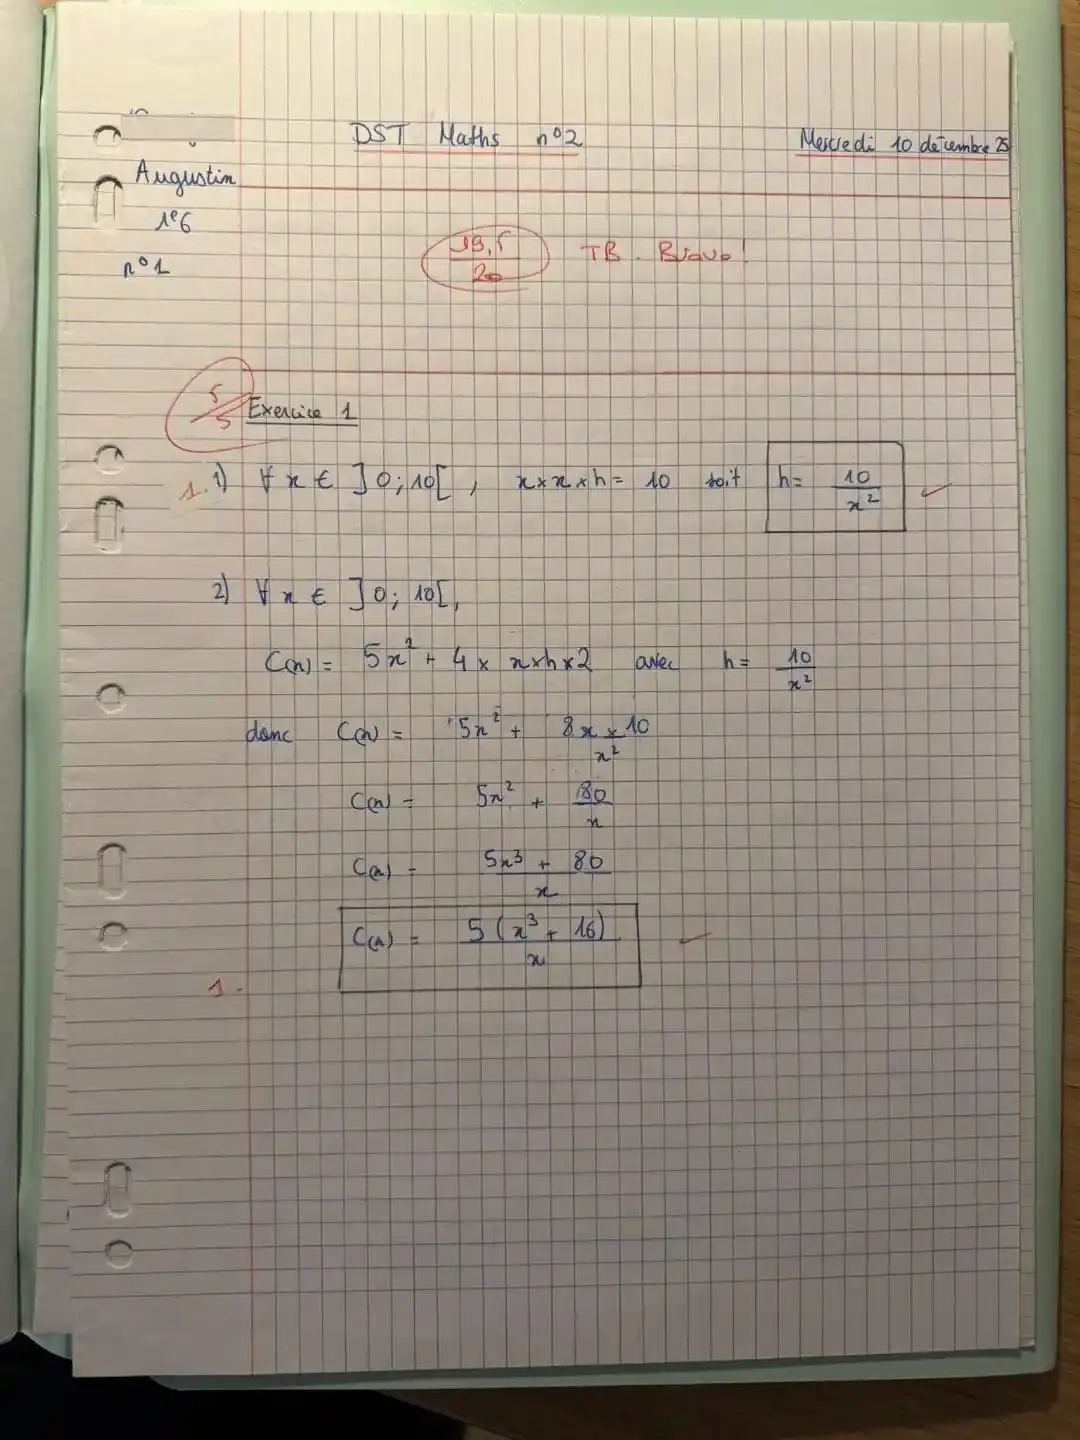 DST Maths n°2
Mercredi 10 décembre 25
Augustin
1e6
n°1
19,5/20 TB. Bravo!
5/5 Exercice 1
1. 1) ∀ x ∈ ]0;10[, x×x×h = 10 soit h = 10/x² ✓
2) ∀ x ∈ ]0; 10[,
C(x) = 5x² + 4 × x×h×2 avec h = 10/x²
donc C(x) = 5x² + 8x × 10/x²
C(x) = 5x² + 80/x
C(x) = (5x³ + 80)/x
C(x) = 5(x³ + 16)/x ✓
1.